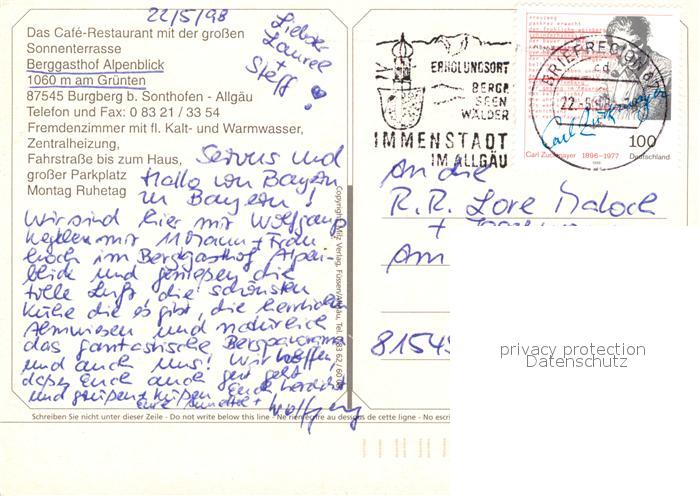 22/5/98
Liebe
Laurel
+
Steff!
Das Café-Restaurant mit der großen
Sonnenterrasse
Berggasthof Alpenblick
1060 m am Grünten
87545 Burgberg b. Sonthofen - Allgäu
Telefon und Fax: 0 83 21 / 33 54
Fremdenzimmer mit fl. Kalt- und Warmwasser,
Zentralheizung,
Fahrstraße bis zum Haus,
großer Parkplatz
Montag Ruhetag
Servus und
Hallo von Bayern
zu Bayern!
Wir sind hier mit Wolfgangs
hoch im Berggasthof Alpen-
blick und genießen die
tolle Luft, die schönsten
Kühe die es gibt, die herrlichen
Almwiesen und natürlich
das fantastische Bergpanorama
und auch uns! Wir hoffen,
dass Euch auch gut geht
und grüßen + küssen Euch herzlichst
Eure +
Wolfgang
Schreiben Sie nicht unter dieser Zeile - Do not write below this line - Ne rien écrire au dessous de cette ligne - No escri
ERHOLUNGSORT
BERGE
SEEN
WÄLDER
IMMENSTADT
IM ALLGÄU
BRIEFREGION
22.-5.98
Carl Zuckmayer
100
Carl Zuckmayer 1896-1977 Deutschland
An die
R.R. Lore
+
Am
81545
privacy protection
Datenschutz